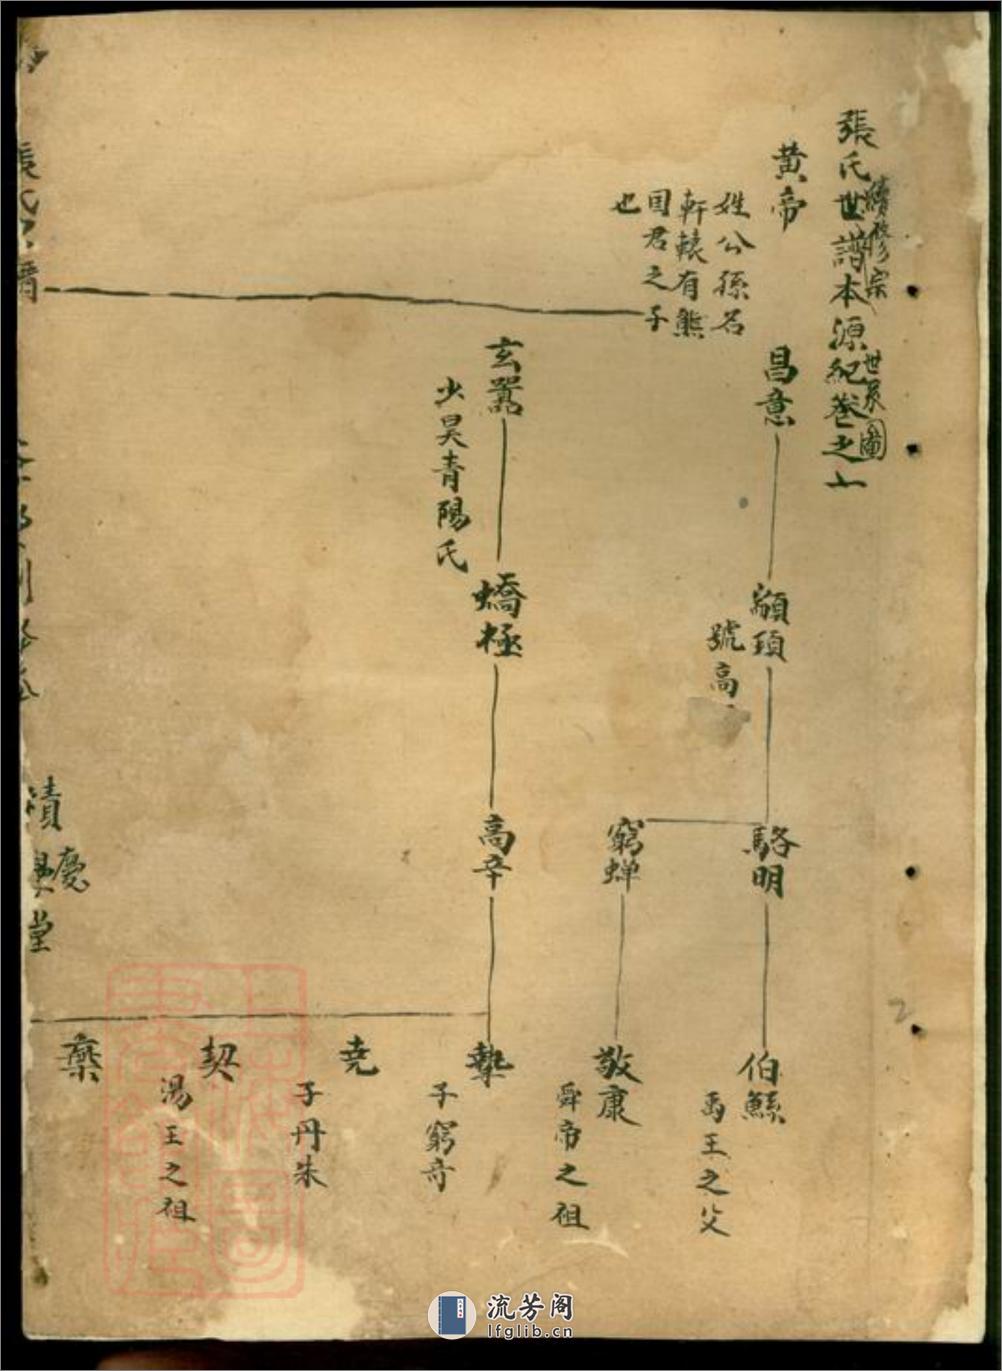 張氏世譜本源紀卷之一
續修宗
世系圖
黃帝
姓公孫名
軒轅有熊
国君之子
也
昌意
玄囂
少昊青陽氏
顓頊
號高
蟜極
駱明
窮蝉
高辛
伯鯀
禹王之父
敬康
舜帝之祖
摯
子窮奇
堯
子丹朱
契
湯王之祖
棄
慶
堂
2
流芳阁
lfglib.cn